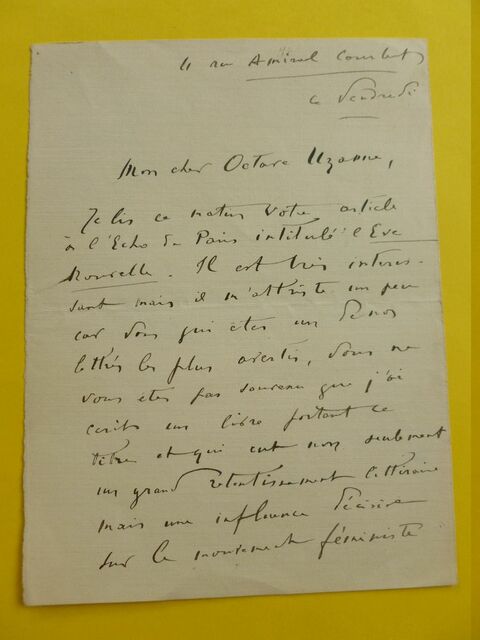 11 rue Amiral Courbet
ce Vendredi
Mon cher Octave Uzanne,
Je lis ce matin votre article
à l'Echo de Paris intitulé l'Eve
Nouvelle. Il est très intéres-
sant mais il m'attriste un peu
car vous qui êtes un de nos
lettrés les plus avertis, vous ne
vous êtes pas souvenu que j'ai
écrit un livre portant ce
titre et qui eut non seulement
un grand retentissement littéraire
mais une influence décisive
sur le mouvement féministe